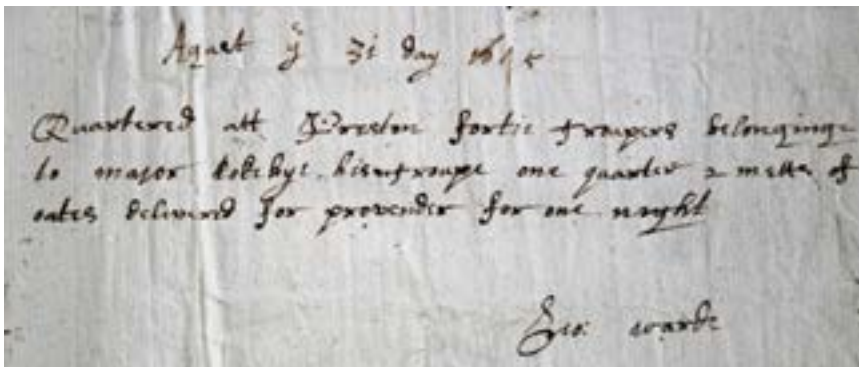 Agaet ye 31 day 1645
Quartered att Preston fortie troupers belonginge
to major his troupe one quarter 2 metts of
oates delivered for provender for one night
Geo: warde